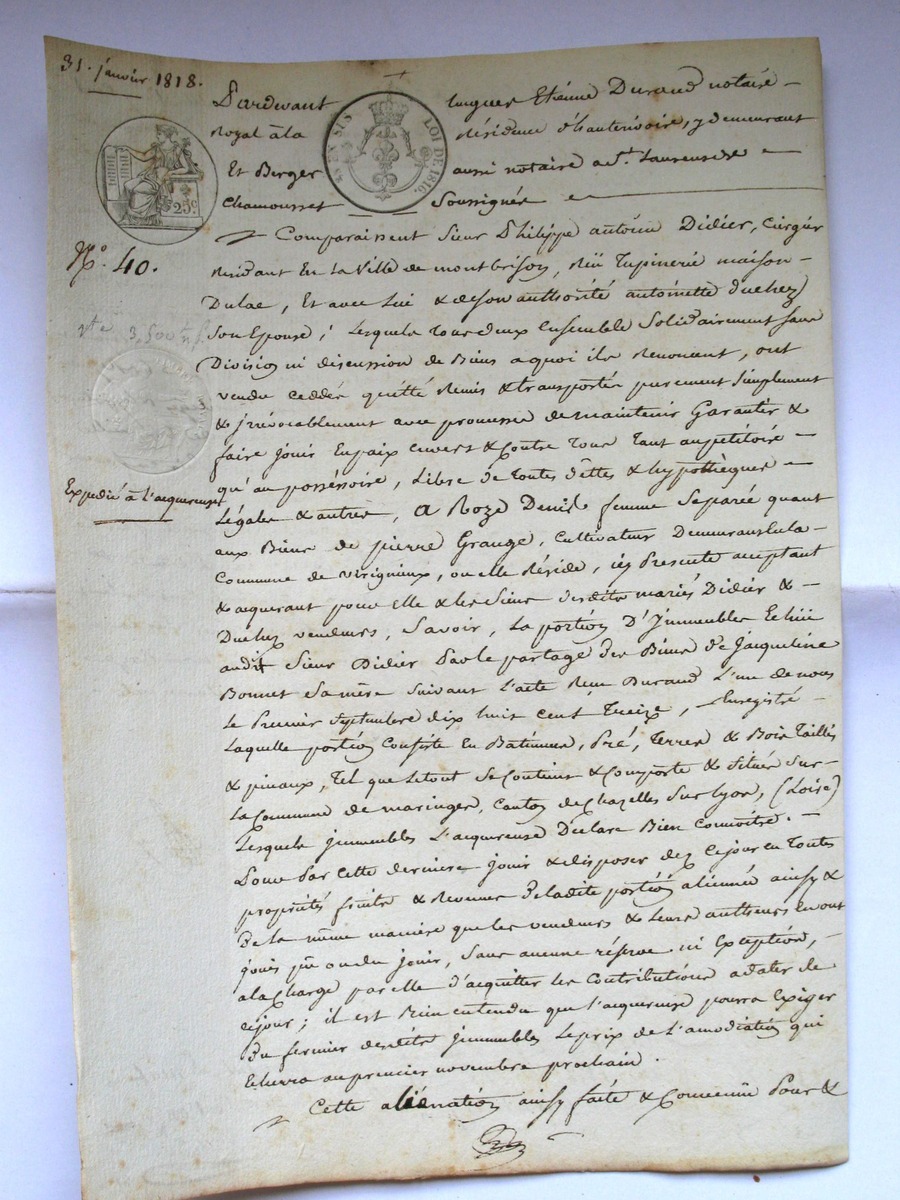 31. janvier 1818.
Pardevant hugues Etiénne Durand notaire
Royal à la Résidence d'hauterivoire, y demeurant
Et Berger aussi notaire a St. Laurens de
Chamousset Soussignés
EN SUS LOI DE 1816.
25c.
No. 40.
Comparaissent Sieur Philippe antoine Didier, Cirugier
Residant En la Ville de montbrison, Rüe Tupinerie maison
Dulac, Et avec Lui & de son authorité antoinette Duchez
Son Epouse; Lesquels tous deux Ensemble Solidairement Sans
Division ni discussion de Biens a quoi ils Renoncent, ont
vendu ceddés quitté Remis & transportés purement Simplement
& jrrévocablement avec promesse de maintenir Garantir &
faire jouir En paix envers & Contre tous tant au pétitoire
qu'au possessoire, Libre de toutes dêttes & hypothèques
Légales & autres, a Roze Denis femme Separée quant
Expedié à l'acquereuse
aux Biens de pierre Grange, Cultivateur Demeurans En la
Commune de Virignieux, ou elle Réside, icy Presente acceptant
& acquerant pour elle & les Siens desdits mariés Didier &
Duchez vendeurs, Savoir, La portion D'Jmmeubles Echüe
audit Sieur Didier Par le partage des Biens de Jacqueline
Bonnet Sa mère Suivant L'acte Reçu Durand L'un de nous
Le Premier Septembre dix huit cent Treize, Enregistré
Laquelle portion Consiste En Batimens, Pré, Terres & Bois Taillis
& pinaux, Tel que Le tout Se Contient & Comporte & Situés Sur
La Commune de maringes, Canton de Chazelles Sur Lyon, (Loire)
Lesquels jmmeubles L'acquereuse Déclare Bien Connoitre.
Pour Par Cette derniere jouir & disposer dez Ce jour en Toutes
propriétés fruits & Revenus De ladite portion alienneé ainsy &
De la même maniere que les vendeurs & Leurs autheurs En ont
jouis pû ou du jouir, Sans aucune réserve ni Exception,
a la Charge par elle d'acquiter les Contributions a dater de
ce jour; il est Bien entendu que l'acquereuse pourra Exiger
Du fermier desdits jmmeubles Le prix de L'amodiation qui
Echerra au premier novembre prochain.
Cette aliénation ainsy faite & Convenüe Pour &